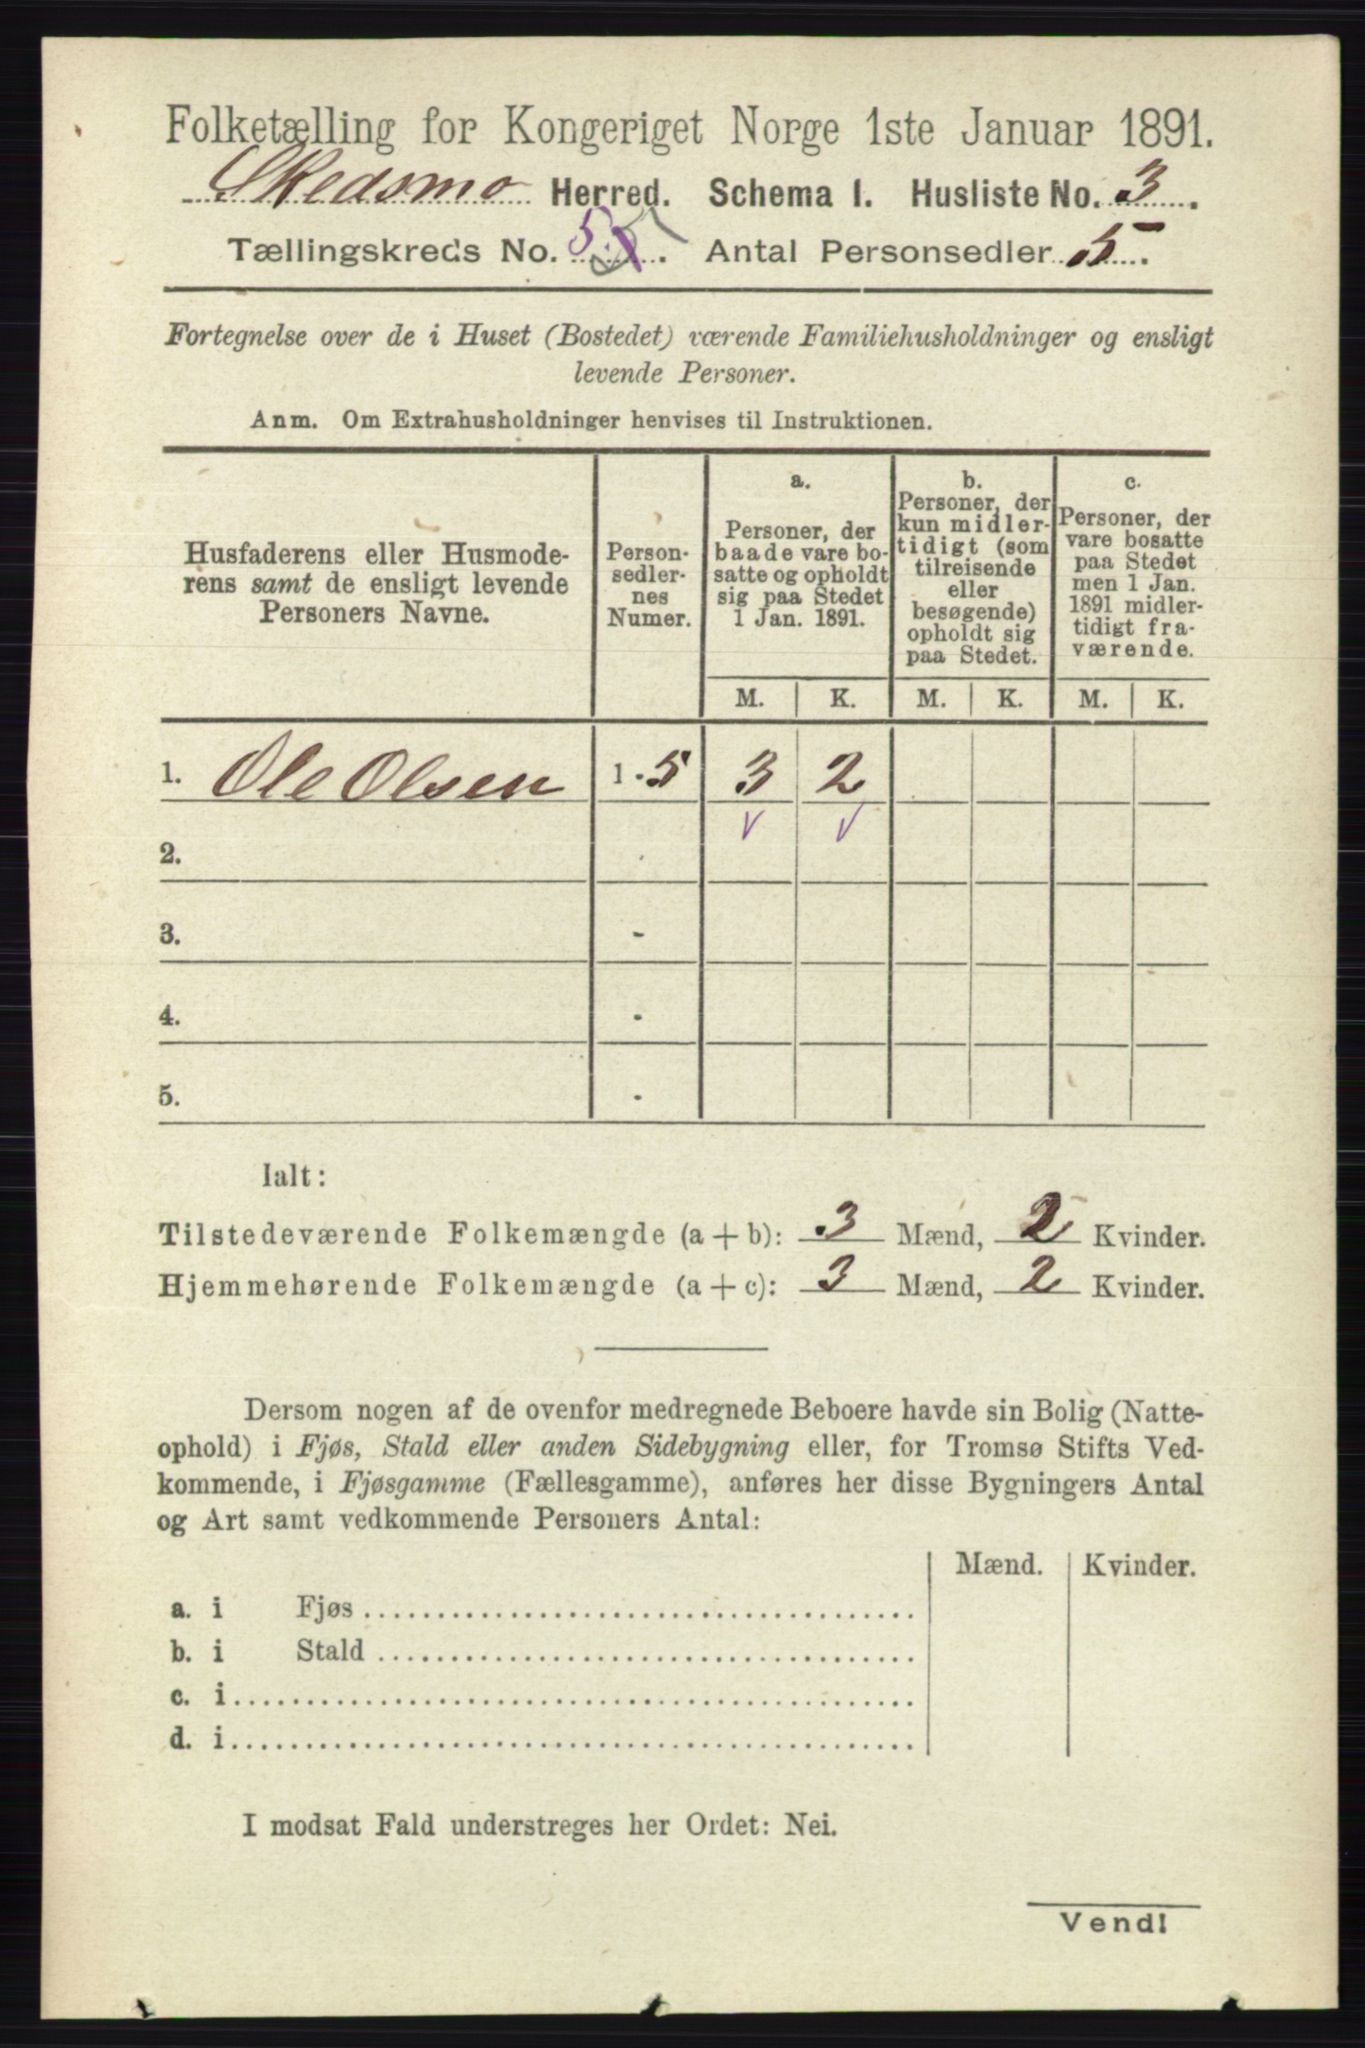 Folketælling for Kongeriget Norge 1ste Januar 1891.
Skedsmo Herred. Schema 1. Husliste No. 3.
Tællingskreds No. 5. Antal Personsedler 5.
Fortegnelse over de i Huset (Bostedet) værende Familiehusholdninger og ensligt
levende Personer.
Anm. Om Extrahusholdninger henvises til Instruktionen.
Husfaderens eller Husmode-
rens samt de ensligt levende
Personers Navne.
Person-
sedler-
nes
Numer.
a.
Personer, der
baade vare bo-
satte og opholdt
sig paa Stedet
1 Jan. 1891.
b.
Personer, der
kun midler-
tidigt (som
tilreisende
eller
besøgende)
opholdt sig
paa Stedet.
c.
Personer, der
vare bosatte
paa Stedet
men 1 Jan.
1891 midler-
tidigt fra-
værende.
M. K. M. K. M. K.
1. Ole Olsen 1 - 5 3 2
2.
3. -
4. -
5. -
Ialt:
Tilstedeværende Folkemængde (a + b): 3 Mænd, 2 Kvinder.
Hjemmehørende Folkemængde (a + c): 3 Mænd, 2 Kvinder.
Dersom nogen af de ovenfor medregnede Beboere havde sin Bolig (Natte-
ophold) i Fjøs, Stald eller anden Sidebygning eller, for Tromsø Stifts Ved-
kommende, i Fjøsgamme (Fællesgamme), anføres her disse Bygningers Antal
og Art samt vedkommende Personers Antal:
Mænd. Kvinder.
a. i Fjøs
b. i Stald
c. i
d. i
I modsat Fald understreges her Ordet: Nei.
Vend!